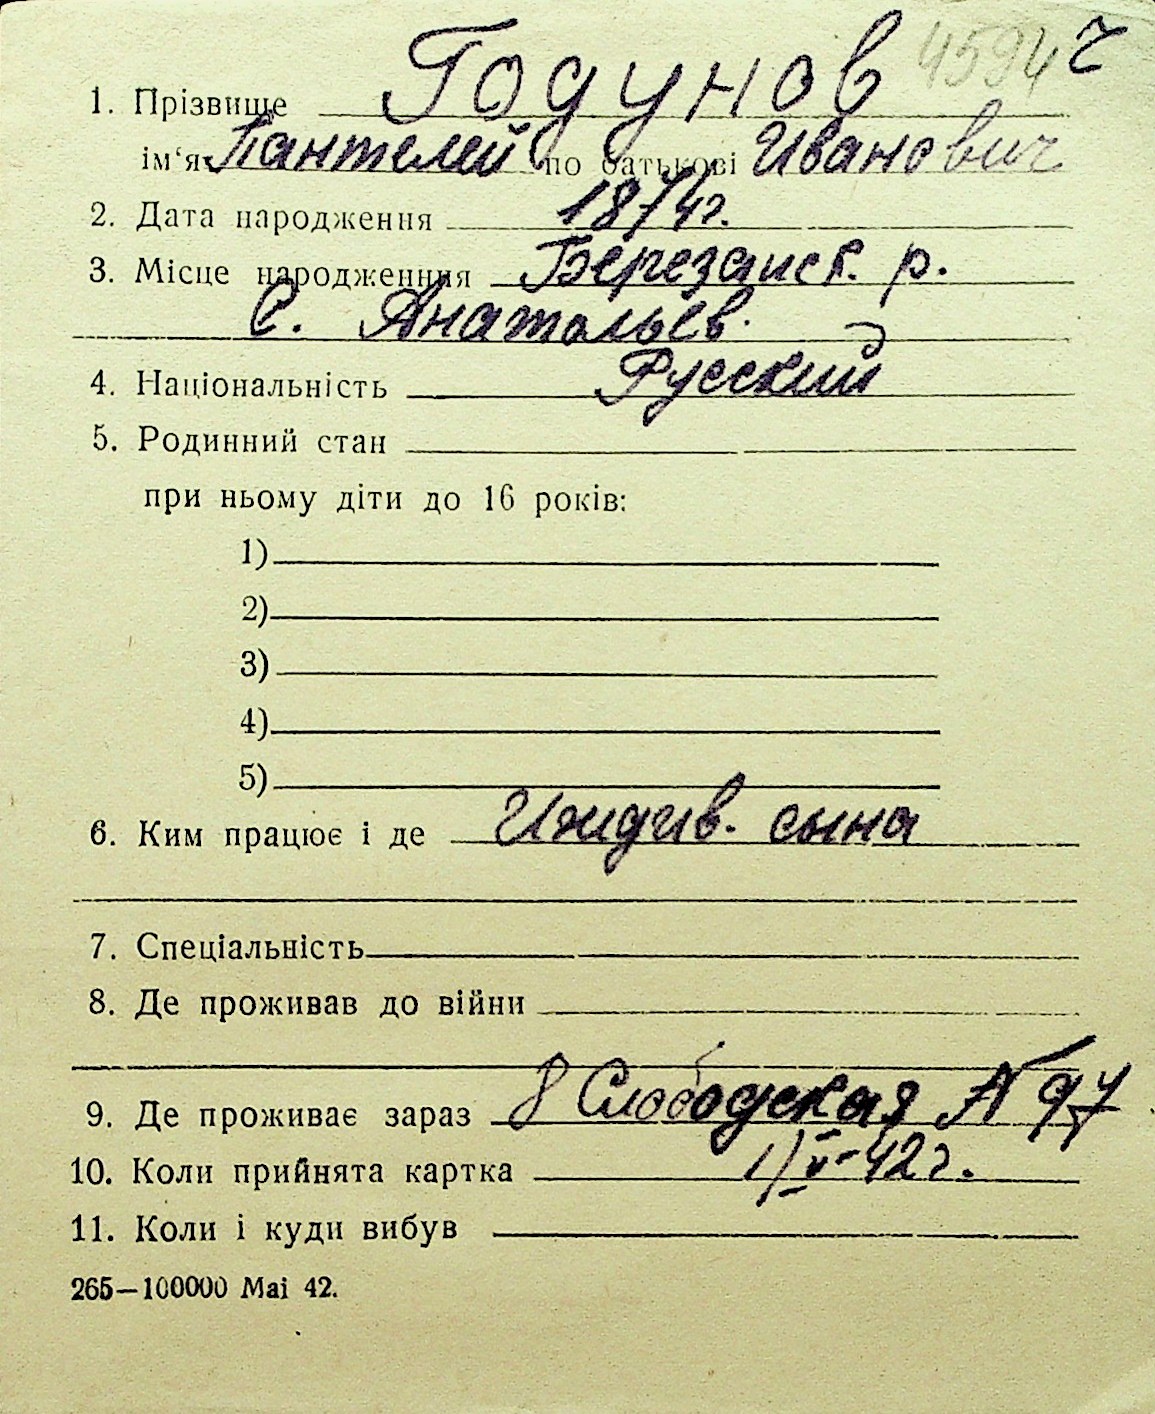 4594 г
1. Прізвище Годунов
ім‘я Пантелей по батькові Иванович
2. Дата народження 1874г.
3. Місце народженння Березанск. р.
С. Анатольев.
4. Національність Русский
5. Родинний стан
при ньому діти до 16 років:
1)
2)
3)
4)
5)
6. Ким працює і де Иждив. сына
7. Спеціальність
8. Де проживав до війни
9. Де проживає зараз 8 Слободская № 97
10. Коли прийнята картка 1/V-42г.
11. Коли і куди вибув
265—100000 Маі 42.